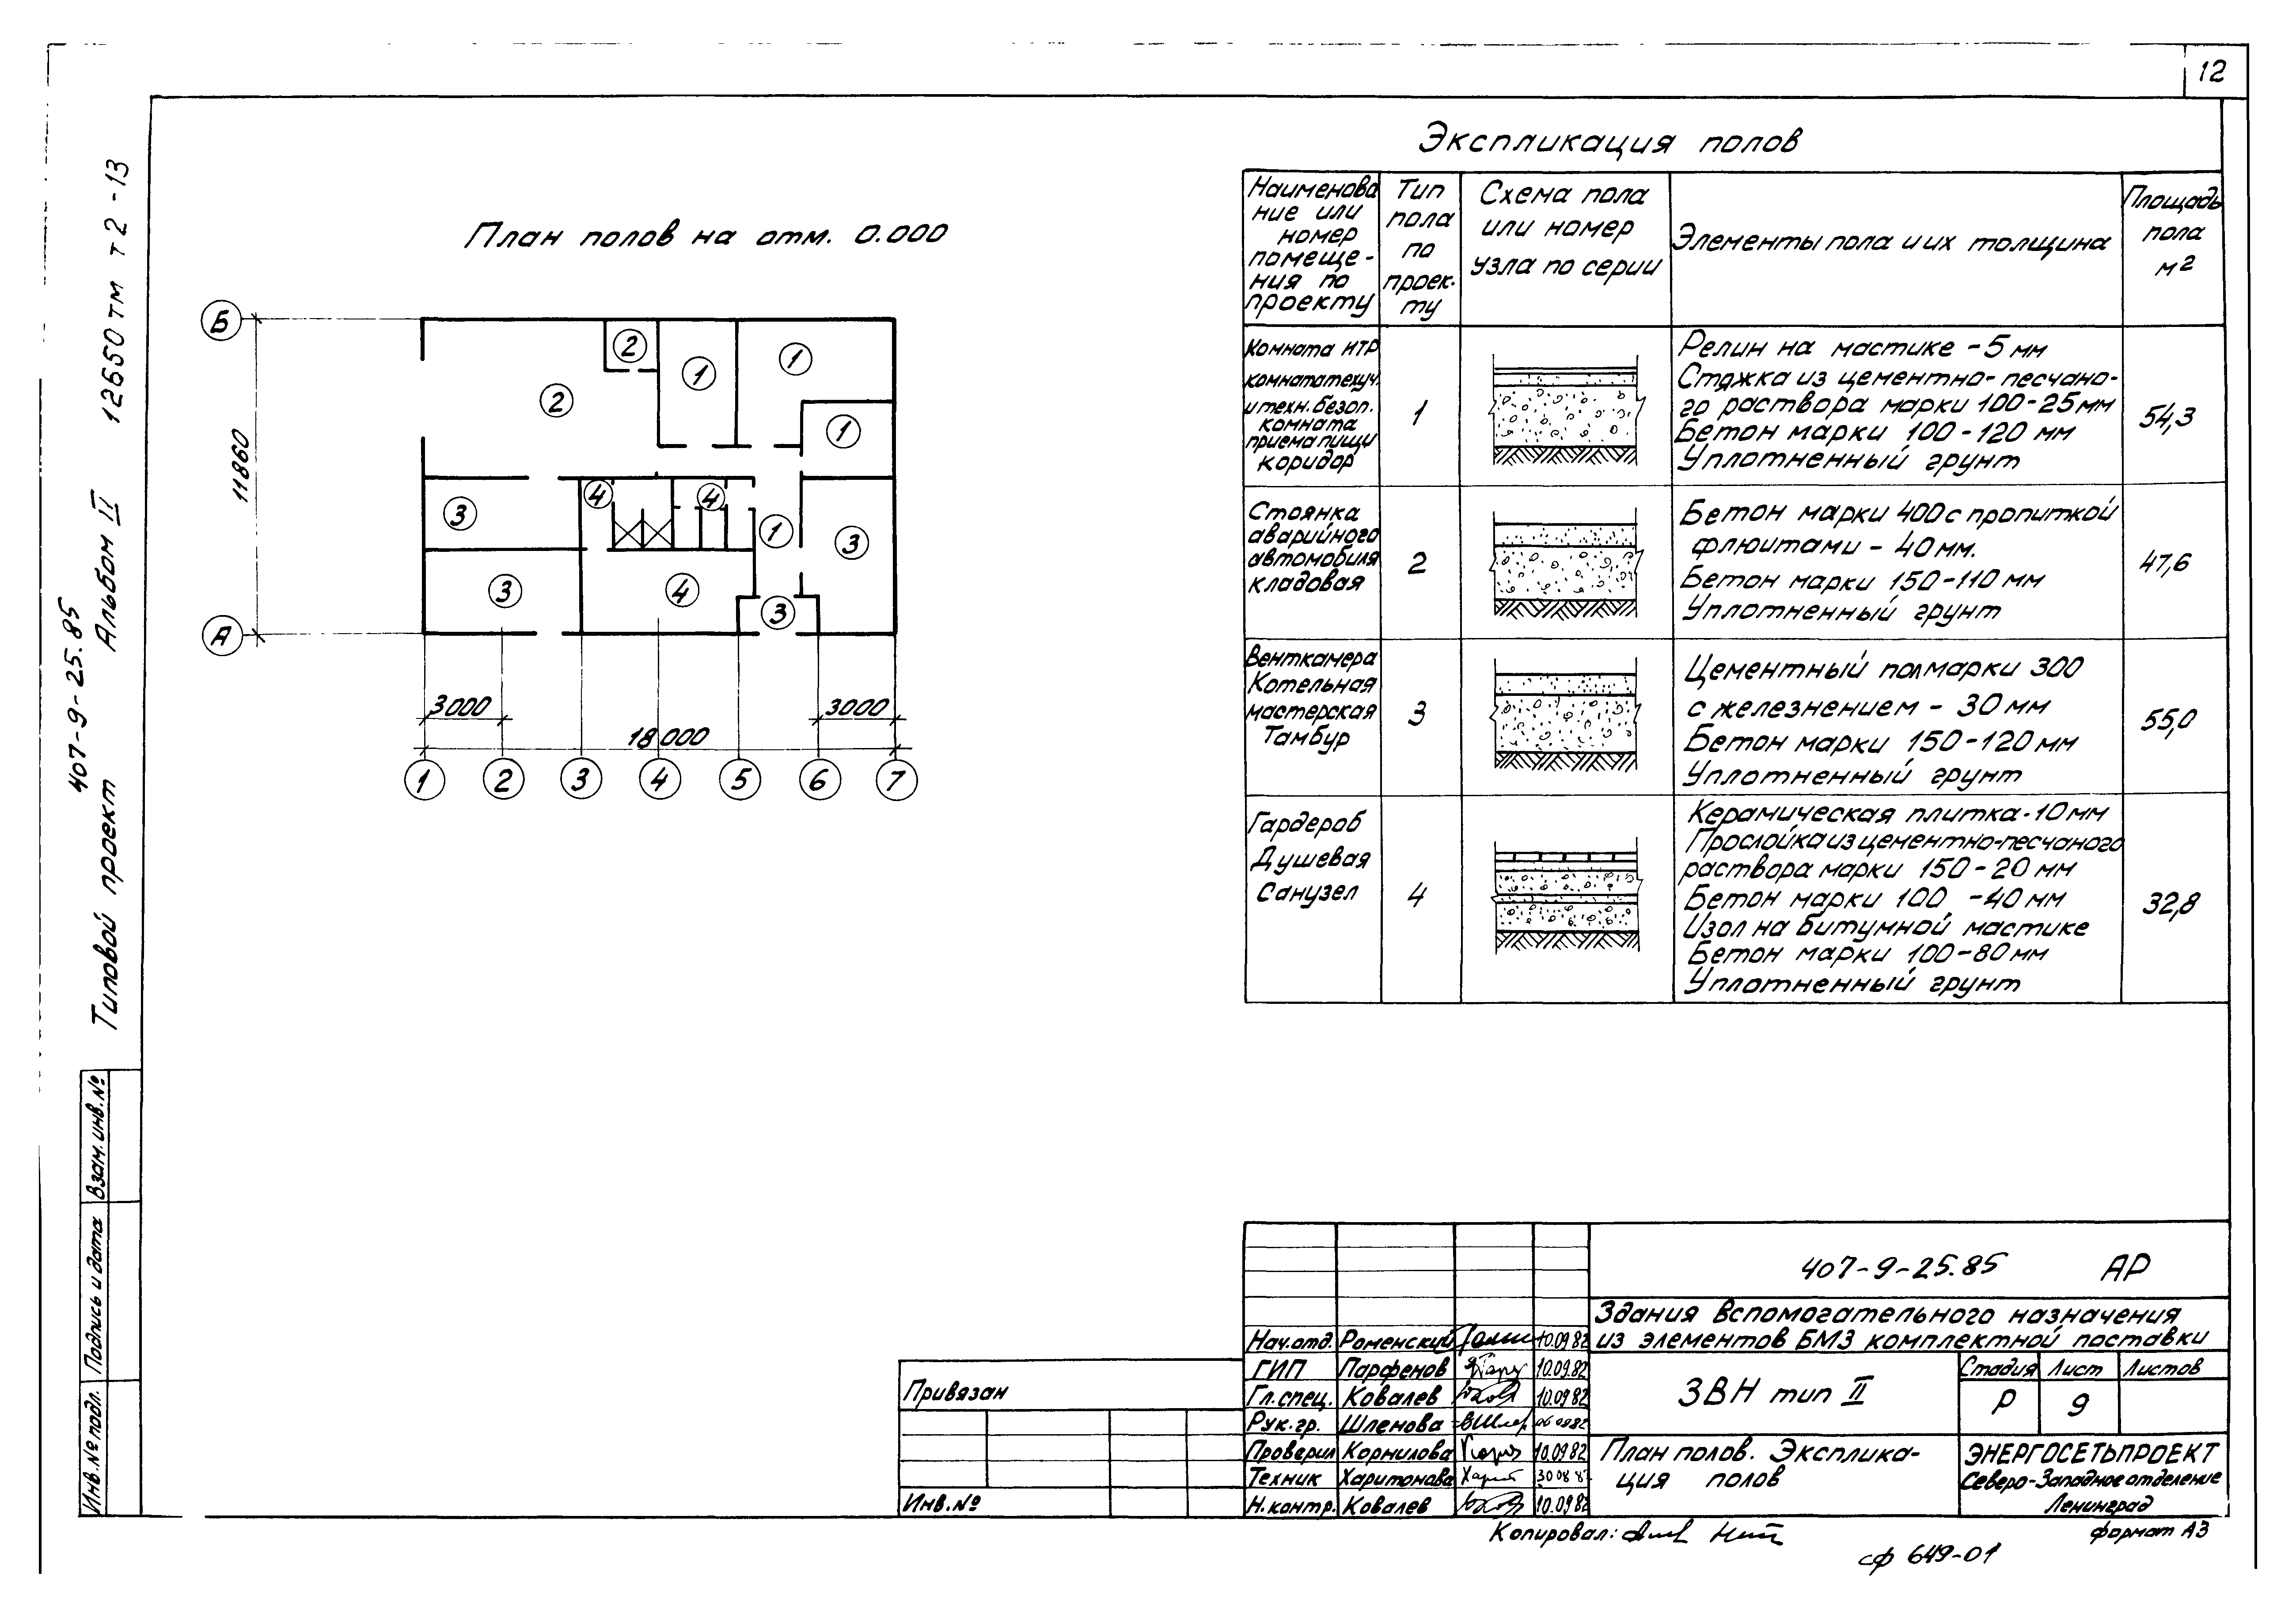 12
Экспликация полов
План полов на отм. 0.000
Б
А
11860
2
1
1
2
1
3
4
4
1
3
3
4
3
3000
3000
18000
1
2
3
4
5
6
7
Наименова
ние или
номер
помеще-
ния по
проекту
Тип
пола
по
проек-
ту
Схема пола
или номер
узла по серии
Элементы пола и их толщина
Площадь
пола
м2
Комната ИТР
комната техуч.
и техн. безоп.
комната
приема пищи
коридор
1
Релин на мастике - 5 мм
Стяжка из цементно-песчано-
го раствора марки 100-25мм
Бетон марки 100-120 мм
Уплотненный грунт
54,3
Стоянка
аварийного
автомобиля
кладовая
2
Бетон марки 400 с пропиткой
флюитами - 40 мм.
Бетон марки 150-110 мм
Уплотненный грунт
47,6
Венткамера
Котельная
мастерская
Тамбур
3
Цементный пол марки 300
с железнением - 30 мм
Бетон марки 150-120 мм
Уплотненный грунт
55,0
Гардероб
Душевая
Санузел
4
Керамическая плитка-10мм
Прослойка из цементно-песчаного
раствора марки 150-20 мм
Бетон марки 100 -40 мм
Изол на битумной мастике
Бетон марки 100-80 мм
Уплотненный грунт
32,8
407-9-25.85
Типовой проект Альбом II 12650тм т2-13
Взам. инв. №
Подпись и дата
Инв. № подл.
Привязан
Инв. №
Нач.отд. Роменский 10.09.82
ГИП Парфенов 10.09.82
Гл.спец. Ковалев 10.09.82
Рук.гр. Шленова
Проверил Корнилова 10.09.82
Техник Харитонова
Н.контр. Ковалев 10.09.82
407-9-25.85 АР
Здания вспомогательного назначения
из элементов БМЗ комплектной поставки
ЗВН тип II
Стадия Лист Листов
Р 9
План полов. Эксплика-
ция полов
ЭНЕРГОСЕТЬПРОЕКТ
Северо-Западное отделение
Ленинград
Копировал:
формат А3
сф 649-01